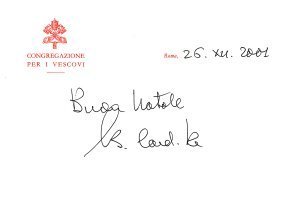 CONGREGAZIONE
PER I VESCOVI
Roma, 26. XII. 2001
Buon Natale
Card. Re